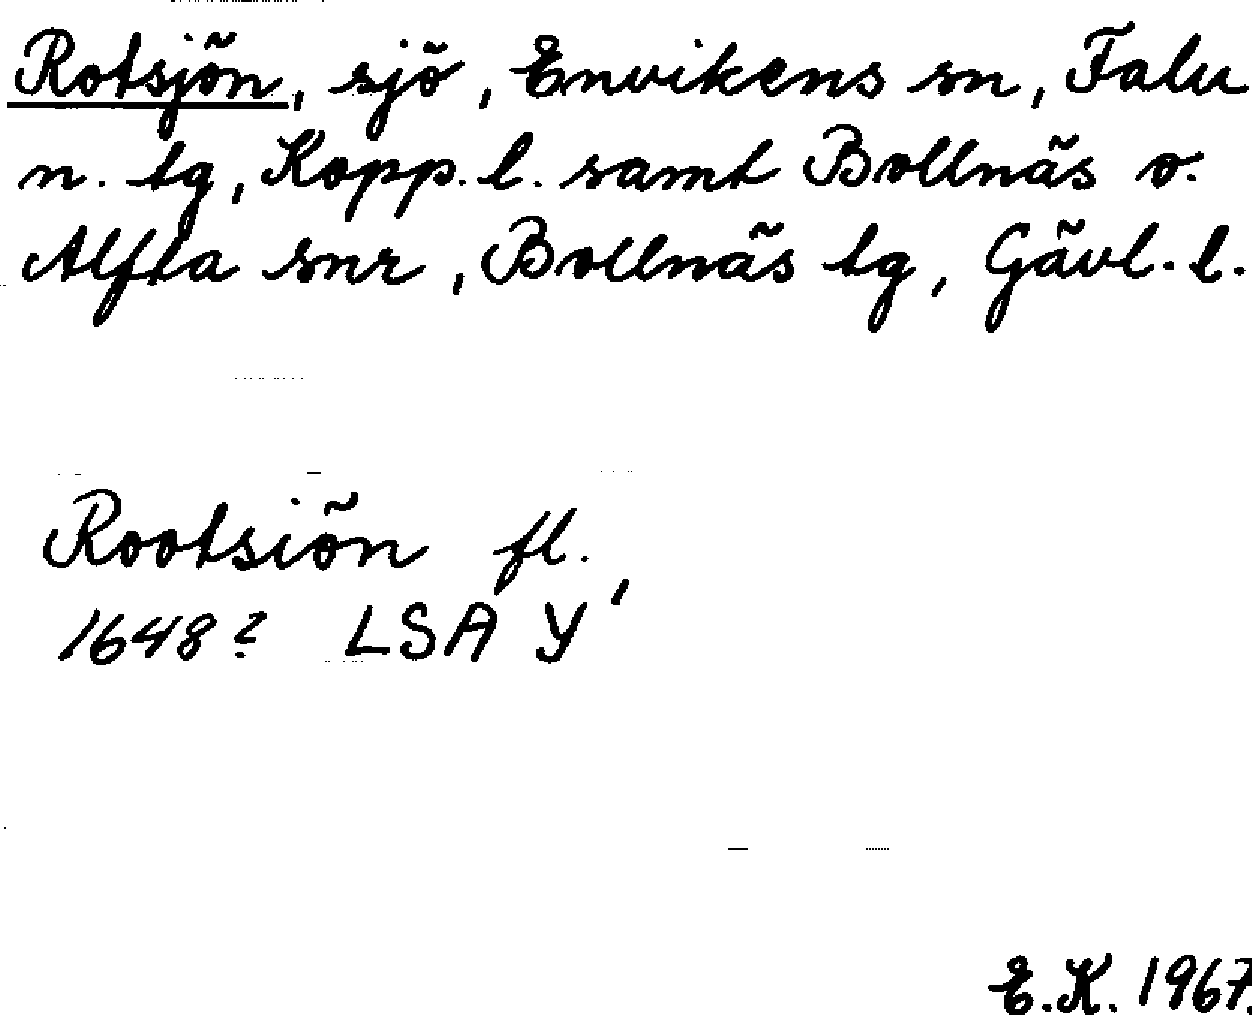 Rotsjön, sjö, Envikens sn, Falu
n. tg, Kopp. l. samt Bollnäs o.
Alfta snr, Bollnäs tg, Gävl. l.
Rootsiön fl.
1648? LSA Y'
E.K. 1967.